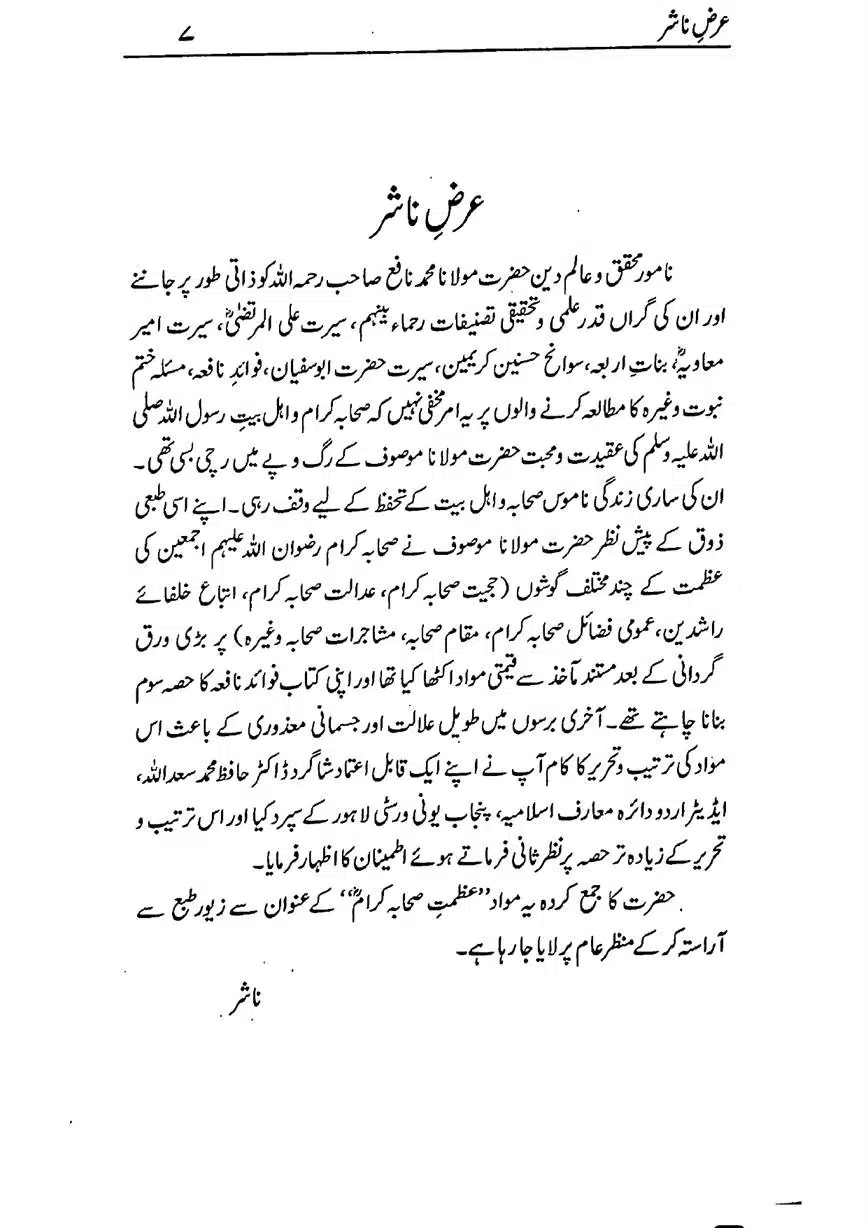 عرضِ ناشر ۷
عرضِ ناشر
نامور محقق و عالم دین حضرت مولانا محمد نافع صاحب رحمہ اللہ کو ذاتی طور پر جاننے
اور ان کی گراں قدر علمی و تحقیقی تصنیفات رحماء بینہم، سیرت علی المرتضیٰؓ، سیرت امیر
معاویہؓ، بناتِ اربعہ، سوانح حسنین کریمین، سیرت حضرت ابوسفیان، فوائدِ نافعہ، مسئلہ ختم
نبوت وغیرہ کا مطالعہ کرنے والوں پر یہ امر مخفی نہیں کہ صحابہ کرام و اہل بیتِ رسول اللہ صلی
اللہ علیہ وسلم کی عقیدت و محبت حضرت مولانا موصوف کے رگ و پے میں رچی بسی تھی۔
ان کی ساری زندگی ناموس صحابہ و اہل بیت کے تحفظ کے لیے وقف رہی۔ اپنے اسی طبعی
ذوق کے پیش نظر حضرت مولانا موصوف نے صحابہ کرام رضوان اللہ علیہم اجمعین کی
عظمت کے چند مختلف گوشوں (حجیت صحابہ کرام، عدالت صحابہ کرام، اتباع خلفائے
راشدین، عمومی فضائل صحابہ کرام، مقام صحابہ، مشاجرات صحابہ وغیرہ) پر بڑی ورق
گردانی کے بعد مستند مآخذ سے قیمتی مواد اکٹھا کیا تھا اور اپنی کتاب فوائد نافعہ کا حصہ سوم
بنانا چاہتے تھے۔ آخری برسوں میں طویل علالت اور جسمانی معذوری کے باعث اس
مواد کی ترتیب و تحریر کا کام آپ نے اپنے ایک قابل اعتماد شاگرد ڈاکٹر حافظ محمد سعد اللہ،
ایڈیٹر اردو دائرہ معارف اسلامیہ، پنجاب یونی ورسٹی لاہور کے سپرد کیا اور اس ترتیب و
تحریر کے زیادہ تر حصہ پر نظر ثانی فرماتے ہوئے اطمینان کا اظہار فرمایا۔
حضرت کا جمع کردہ یہ مواد ”عظمتِ صحابہ کرامؓ“ کے عنوان سے زیور طبع سے
آراستہ کر کے منظر عام پر لایا جا رہا ہے۔
ناشر